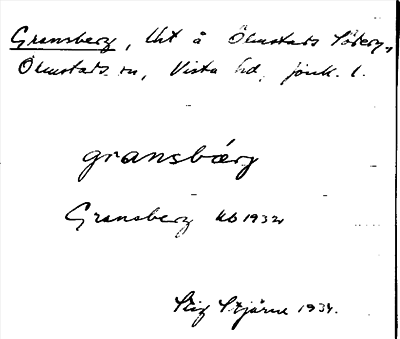 Gransberg, lht å Ölmstads Söderg.,
Ölmstads sn, Vista hd, Jönk. l.
gransbärj
Gransberg kb 1932
Stig Stjärne 1934.